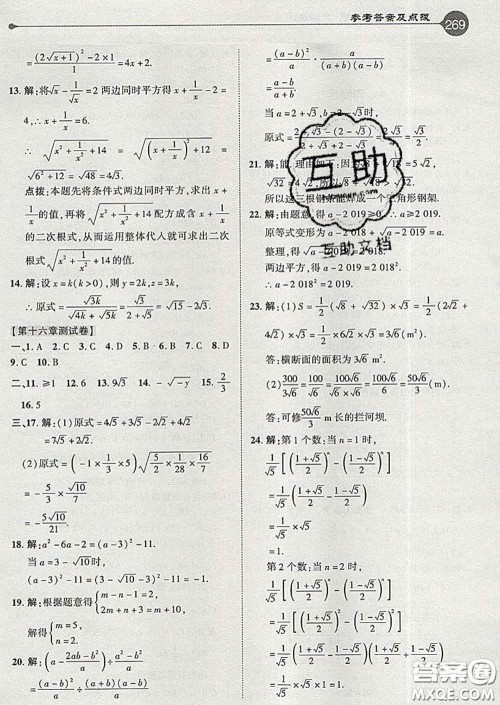 参考答案及点拨 269
=\frac{(2\sqrt{x}+1)^2}{1}=4x+2.
13. 解:将\sqrt{x}-\frac{1}{\sqrt{x}}=2 两边同时平方得 x+\frac{1}{x}-2=
4,∴x+\frac{1}{x}=6.
∴\sqrt{x^2+\frac{1}{x^2}+14}=\sqrt{(x+\frac{1}{x})^2+12}
=\sqrt{6^2+12}=\sqrt{48}=4\sqrt{3}.
点拨:本题先将条件式两边同时平方,求出 x+
\frac{1}{x}的值,再将 x^2+\frac{1}{x^2}+14 配方成含 x+\frac{1}{x}
的二次根式,从而运用整体代人就可以求出
\sqrt{x^2+\frac{1}{x^2}+14}的值.
14. 解:设 x=k(k>0),则 y=2k,z=3k,
∴原式=\frac{\sqrt{k}}{\sqrt{3k}+\sqrt{4k}}=\frac{1}{\sqrt{3}+2}
【第十六章测试卷】
一、1. A 2. C 3. C 4. A 5. B 6. A 7. D 8. D
9. C 10. B
二、11. ≥1 12. 6 13. 9\sqrt{3} 14. -\sqrt{-y} 15. \frac{2}{3}
16. 5
三、17. 解:(1)原式=4\sqrt{5}+3\sqrt{5}-2\sqrt{2}+4\sqrt{2}
=7\sqrt{5}+2\sqrt{2}.
(2)原式=(-1×\frac{1}{3}×5)\sqrt{\frac{5}{2}×\frac{1}{28}×\frac{16}{7}}
=-\frac{5}{3}×\frac{\sqrt{10}}{7}
=-\frac{5\sqrt{10}}{21}.
18. 解:a^2-6a-2=(a-3)^2-11.
当 a=\sqrt{2}+3 时,
(a-3)^2-11=(\sqrt{2}+3-3)^2-11=-9.
19. 解:根据题意得{m-n-1=3, 2m+n+3=m+10,
解得{m=5, n=1.
20. 解:(a-\frac{2ab-b^2}{a})÷\frac{a^2-b^2}{a}
=\frac{(a-b)^2}{a}÷\frac{(a+b)(a-b)}{a}
=\frac{(a-b)^2}{a}·\frac{a}{(a+b)(a-b)}
=\frac{a-b}{a+b}.
当 a=2+\sqrt{3},b=2-\sqrt{3}时,
原式=\frac{2\sqrt{3}}{4}=\frac{\sqrt{3}}{2}.
21. 解:能.理由如下:
所以这三根钢条能焊成一个三角形钢架.
22. 解:由题意,得 a-2 019≥0. ∴a≥2 019.
原等式变形为 a-2 018+\sqrt{a-2 019}=a.
整理,得\sqrt{a-2 019}=2 018.
两边平方,得 a-2 019=2 018^2.
∴a-2 018^2=2 019.
23. 解:(1)S=\frac{1}{2}(\sqrt{8}+\sqrt{32})×\sqrt{3}=\frac{1}{2}(2\sqrt{2}
+4\sqrt{2})×\sqrt{3}=\frac{1}{2}×6\sqrt{2}×\sqrt{3}=3\sqrt{6}(m^2).
答:横断面的面积为 3\sqrt{6} m^2.
(2)\frac{300}{3\sqrt{6}}=\frac{100}{\sqrt{6}}=\frac{100\sqrt{6}}{\sqrt{6}×\sqrt{6}}=\frac{100\sqrt{6}}{6}=\frac{50\sqrt{6}}{3}(m).
答:可修\frac{50\sqrt{6}}{3} m 长的拦河坝.
24. 解:第 1 个数:当 n=1 时,
\frac{1}{\sqrt{5}}[(\frac{1+\sqrt{5}}{2})^n-(\frac{1-\sqrt{5}}{2})^n]
=\frac{1}{\sqrt{5}}(\frac{1+\sqrt{5}}{2}-\frac{1-\sqrt{5}}{2})
=\frac{1}{\sqrt{5}}×\sqrt{5}
=1.
第 2 个数:当 n=2 时,
\frac{1}{\sqrt{5}}[(\frac{1+\sqrt{5}}{2})^n-(\frac{1-\sqrt{5}}{2})^n]
=\frac{1}{\sqrt{5}}[(\frac{1+\sqrt{5}}{2})^2-(\frac{1-\sqrt{5}}{2})^2]
=\frac{1}{\sqrt{5}}×(\frac{1+\sqrt{5}}{2}+\frac{1-\sqrt{5}}{2})(\frac{1+\sqrt{5}}{2}-\frac{1-\sqrt{5}}{2})
=\frac{1}{\sqrt{5}}×1×\sqrt{5}=1.
互助
互助文档
答案圈
MXQE.COM